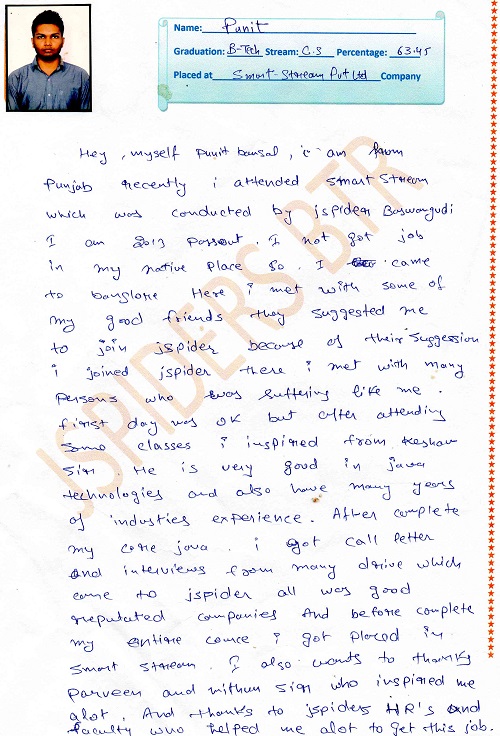 Name: Punit
Graduation: B-Tech Stream: C.S Percentage: 63.45
Placed at Smart-Stream Pvt Ltd Company
Hey, myself Punit bansal, i am from
Punjab recently i attended smart stream
which was conducted by jspider Baswangudi
I am 2013 passout. I not got job
in my native place so. I came
to banglore Here i met with some of
my good friends they suggested me
to join jspider because of their suggession
i joined jspider there i met with many
persons who was suffering like me.
first day was ok but after attending
some classes i inspired from Keshav
sir. He is very good in java
technologies and also have many years
of industies experience. After complete
my core java. i got call letter
and interviews from many drive which
came to jspider all was good
reputated companies And before complete
my entire cource i got placed in
smart stream. I also wants to thanks
Parveen and nithun sir who inspired me
alot. And thanks to jspiders HR's and
faculty who helped me alot to get this job.
JSPIDERS BTR